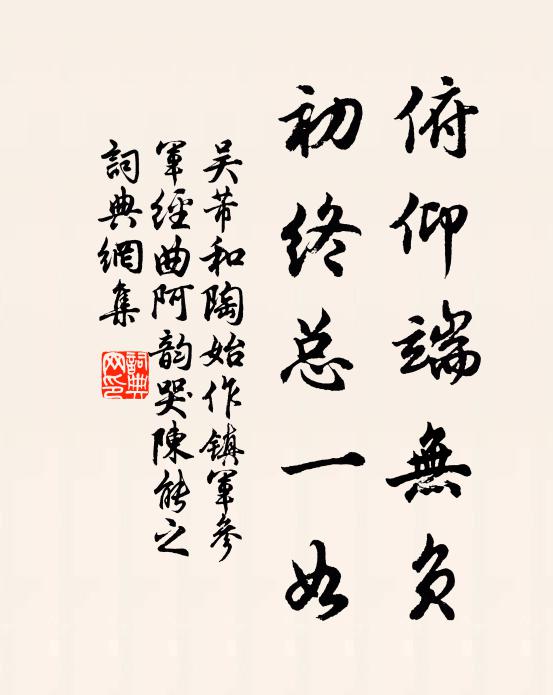 俯仰端無負
初終总一如
吴芾和陶始作镇軍參
軍經曲阿韵哭陳能之
詞典網集
詞典
网印